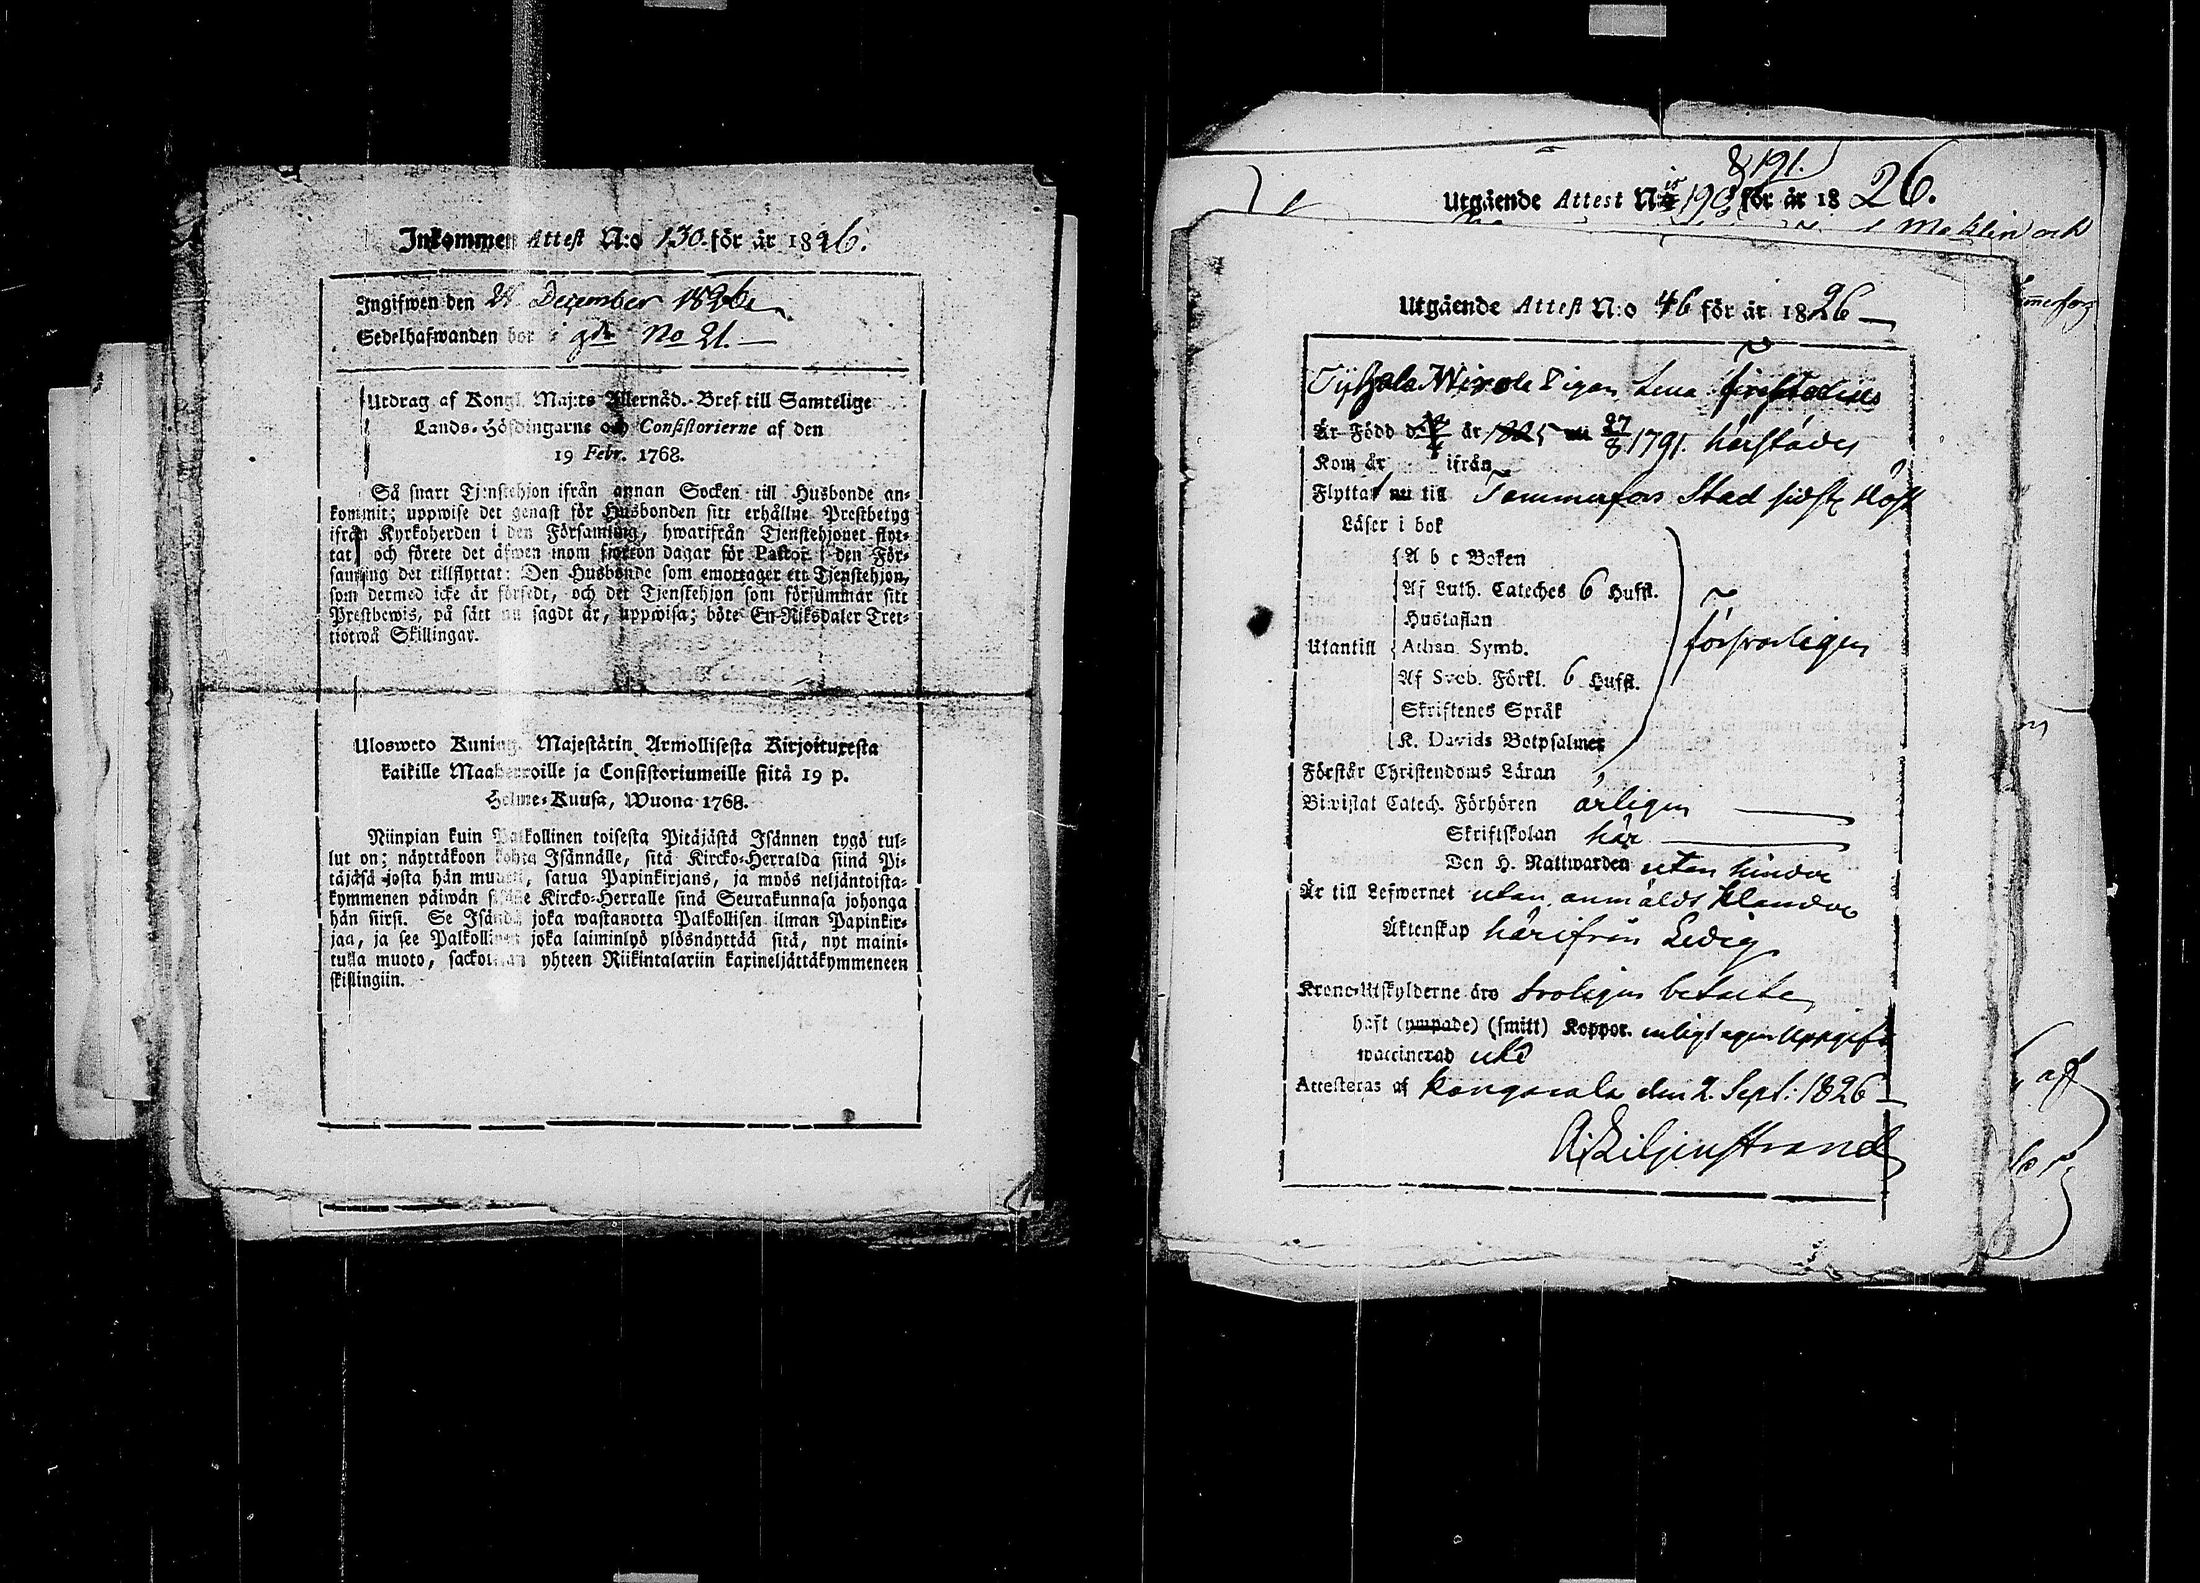 Inkommen Attest N:o 130. för år 1826.
Ingifwen den 21 December 1826
Sedelhafwanden bor i gdn No 21. —
Utdrag af Kongl. Maj:ts Allernåd. Bref till Samtelige
Lands-Höfdingarne och Consistorierne af den
19 Febr. 1768.
Så snart Tjenstehjon ifrån annan Socken till Husbonde an-
kommit; uppwise det genast för Husbonden sitt erhållne Prestbetyg
ifrån Kyrkoherden i den Församling, hwarifrån Tjenstehjonet flyt-
tat, och förete det äfwen inom fjorton dagar för Pastor i den För-
samling det tillflyttat: Den Husbonde som emottager ett Tjenstehjon,
som dermed icke är försedt, och det Tjenstehjon som försummar sitt
Prestbewis, på sätt nu sagdt är, uppwisa; böte En Riksdaler Tret-
tiotwå Skillingar.
Ulosweto Kuning. Majestätin Armollisesta Kirjoituxesta
kaikille Maaherroille ja Consistoriumeille siitä 19 p.
Helme-Kuusa, Wuona 1768.
Niinpian kuin Palkollinen toisesta Pitäjästä Isännen tygö tul-
lut on; näyttäkoon kohta Isännälle, sitä Kircko-Herralda siinä Pi-
täjäsä josta hän muutti, satua Papinkirjans, ja myös neljäntoista-
kymmenen päiwän sisälle Kircko-Herralle sinä Seurakunnasa johonga
hän siirsi. Se Isändä joka wastanotta Palkollisen ilman Papinkir-
jaa, ja see Palkollinen joka laiminlyö ylösnäyttää sitä, nyt maini-
tulla muoto, sackotetaan yhteen Riikintalariin kaxineljättäkymmeneen
skillingiin.
& 191.
Utgående Attest N:is 190 för år 1826.
Meklin och
Utgående Attest N:o 46 för år 1826 —
Pigan Lena
Är Född d. år 1805 27/8 1791. härstädes
Kom år ifrån
Flyttat nu till Tammerfors Stad sidste Höst
Läser i bok
A b c Boken
Af Luth. Cateches 6 Hufst.
Hustaflan
Utantill Athan. Symb. försvarligen
Af Sveb. Förkl. 6 Hufst.
Skriftenes Språk
K. Davids Botpsalmer
Förstår Christendoms Läran
Biwistat Catech. Förhören årligen
Skriftskolan här
Den H. Nattwarden utan hinder
Är till Lefwernet utan anmäldt klander
Äktenskap härifrån Ledig
Krono-Utskylderne äro troligen betalte
haft (ympade) (smitt) Koppor. enligt egen Uppgift
waccinerad
Attesteras af Kangasala den 2. Sept: 1826 —
A: Liljenstrand
af